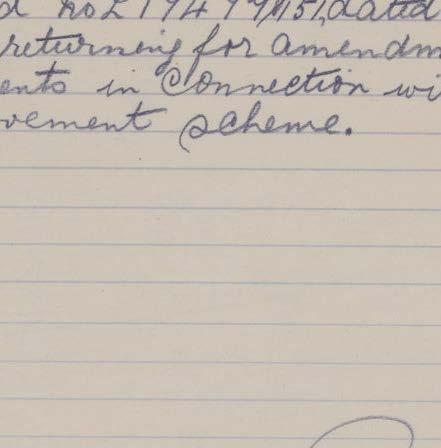 dated
returning for amendm
ents in Connection wi
vement scheme.